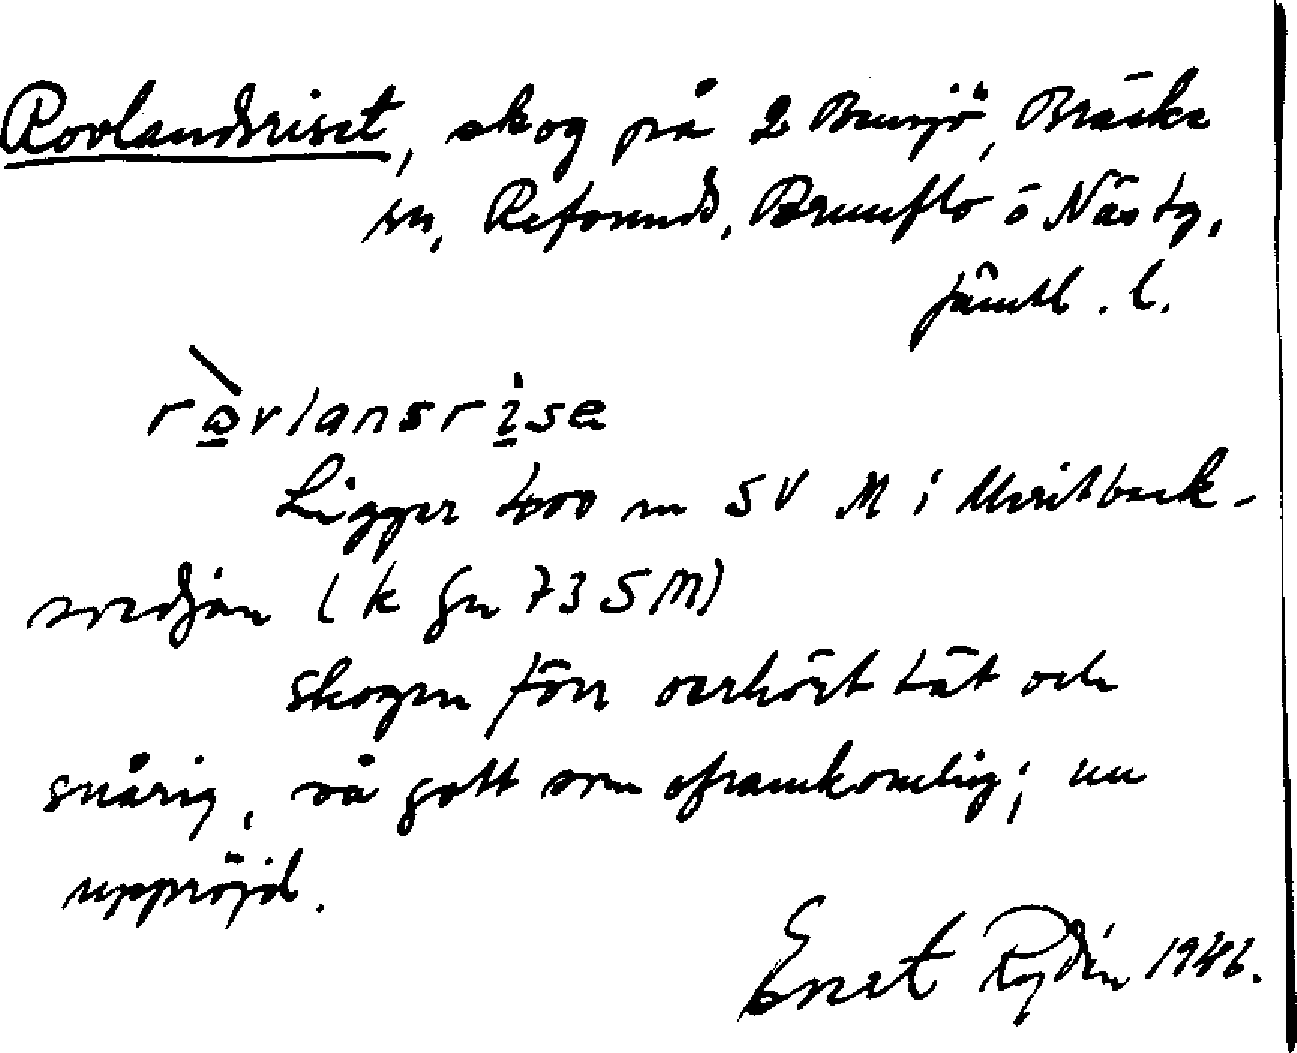 Rovlandsriset, skog på 2 Bensjö, Bräcke
sn, Refsunds, Brunflo o Näs tg,
Jämtl. l.
ròvlansrise
Ligger 400 m SV M i
svedjan (k fn 73 5 M)
Skogen förr oerhört tät och
snårig, så gott som oframkomlig; nu
uppröjd.
Ernst Rydén 1946.